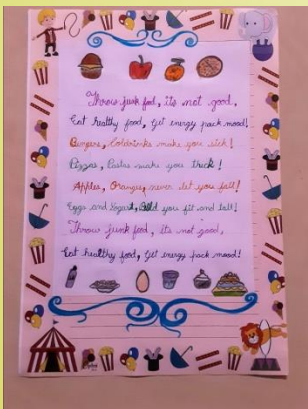 Throw junk food, its not good,
Eat healthy food, Get energy pack mood!
Burgers, Colddrinks make you sick!
Pizzas, Pastas make you thick!
Apples, Oranges, never let you fall!
Eggs and Yogurt, Build you fit and tall!
Throw junk food, its not good,
Eat healthy food, Get energy pack mood!